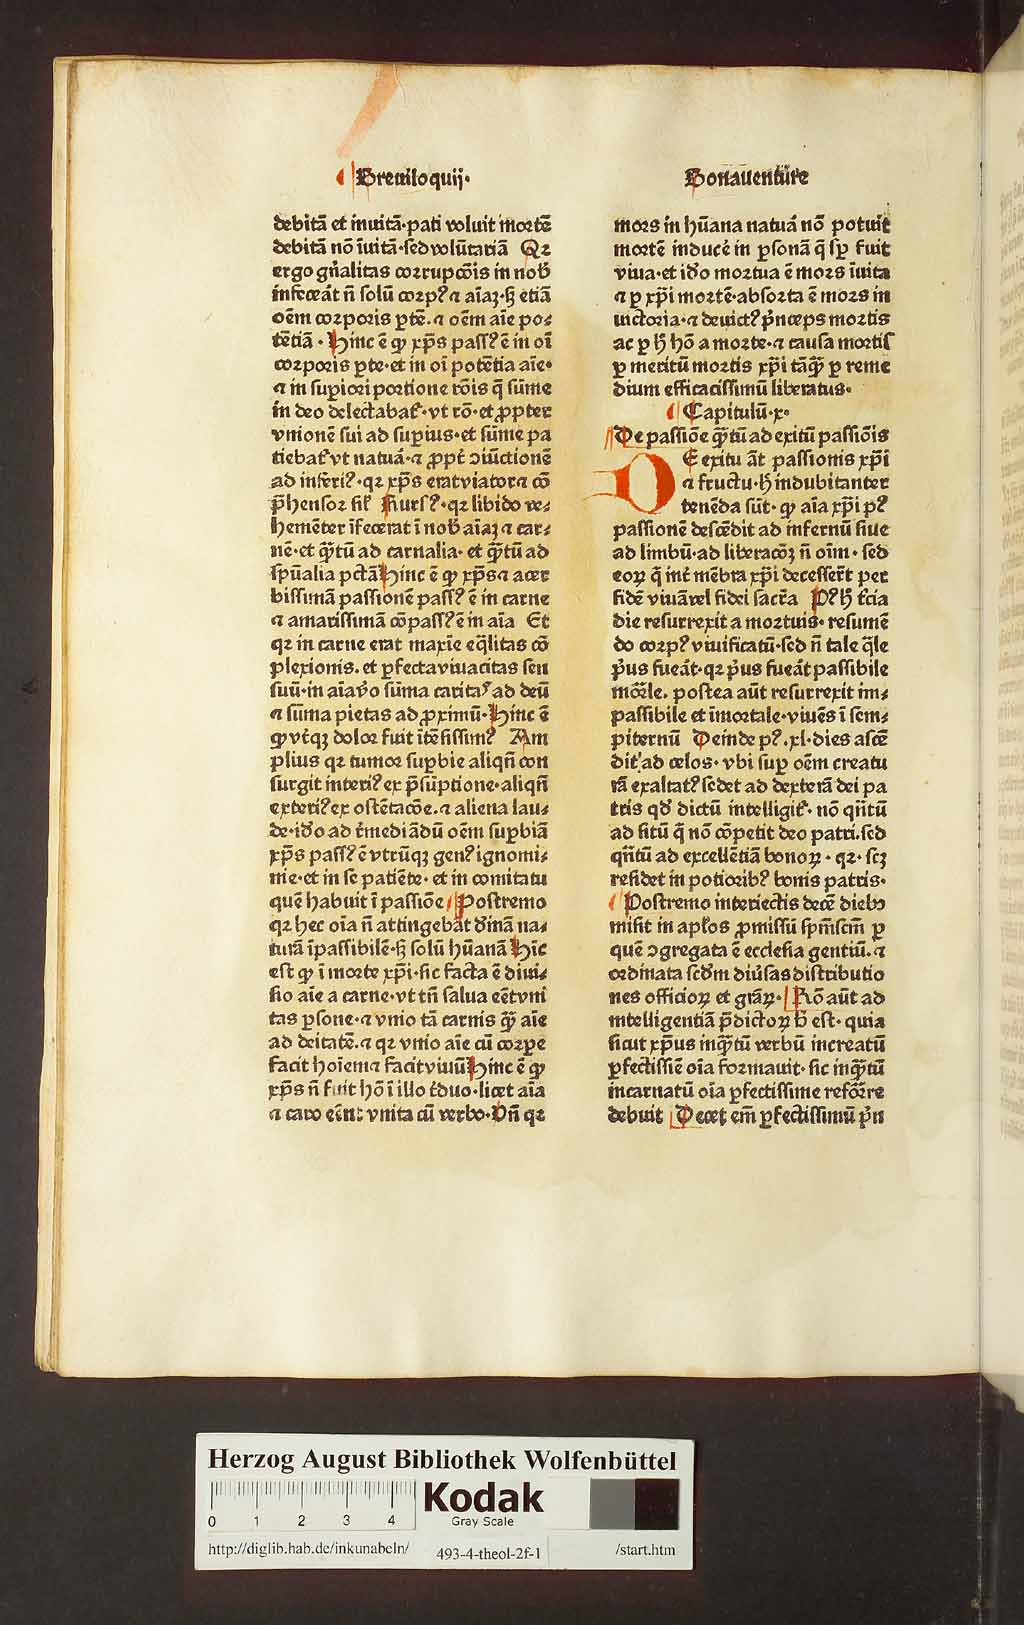 Breuiloquij.
Bonauenture
debitā et inuitā·pati voluit mortē
debitā nō īuitā·sed volūtariā Qꝛ
ergo gn̄alitas corrupcōis in nob̄
infeceāt n̄ solū corpꝰ ⁊ aīaꝫ·sꝫ etiā
oēm corporis ꝑtē.⁊ oēm aīe po⸗
tētiā·Hinc ē ꝙ xp̄s passꝰ ē in oī
corporis ꝑte·et in oī potētia aīe·
⁊ in supiori portione rōis q̄ sūme
in deo delectabat᷑·vt rō·et ꝓpter
vnionē sui ad superius·et sūme pa
tiebat᷑ vt natuá·⁊ ꝓpt̄ ↄiūctionē
ad inferiꝰ·qꝛ xp̄s erat viator ⁊ cō
p̄hensor sil᷑ Rursꝰ·qꝛ libido ve⸗
hemēter īfecerat ī nob̄ aīaꝫ ⁊ car⸗
nē·et qꝫtū ad carnalia·et qꝫtū ad
spūalia pctā Hinc ē ꝙ xp̄s ⁊ acer
bissimā passionē passꝰ ē in carne
⁊ amarissimā cōpassꝰ ē in aīa Et
qꝛ in carne erat maxīe eq̄litas cō
plexionis.et ꝑfecta viuacitas sen
suū·in aīa v̄o sūma caritas ad deū
⁊ sūma pietas ad ꝓximū·Hinc ē
ꝙ vt̄qꝫ dolor fuit ītēsissimꝰ Am
plius qꝛ tumor supbie aliqn̄ con
surgit interiꝰ ex p̄sūptione·aliqn̄
exteriꝰ ex ostētacōe.⁊ aliena lau⸗
de·idō ad r̄mediādū oēm supbiā
xp̄s passꝰ ē vtrūqꝫ genꝰ ignomi⸗
nie·et in se patiēte·et in comitatu
quē habuit ī passiōe Postremo
qꝛ hec oīa n̄ attingebāt diīnā na⸗
turā īpassibilē·sꝫ solū hūanā Hīc
est ꝙ ī morte xp̄i·sic facta ē diui⸗
sio aīe a carne·vt tn̄ salua eēt vni
tas ꝑsone·⁊ vnio tā carnis qꝫ aīe
ad deitatē.⁊ qꝛ vnio aīe cū corꝑe
facit hoīem ⁊ facit viuū Hinc ē ꝙ
xp̄s n̄ fuit hō ī illo t̄duo·licet aīa
⁊ caro eēnt vnita cū verbo·Vn̄ qꝛ
mors in hūana natuá nō potuit
mortē inducé in ꝑsonā q̄ sꝑ fuit
viua·et idō mortua ē mors īuita
⁊ ꝑ xp̄i mortē·absorta ē mors in
victoria·⁊ deuictꝰ p̄nceps mortis
ac ꝑ h̄ hō a morte·⁊ causa mortis
ꝑ meritū mortis xp̄i tāqꝫ ꝑ reme
dium efficacissimū liberatus·
Capitulū·x·
De passiōe qꝫtū ad exitū passiōis
DE exitu āt passionis xp̄i
⁊ fructu·h̄ indubitanter
tenēda sūt·ꝙ aīa xp̄i pꝰ
passionē descēdit ad infernū siue
ad limbū·ad liberacōꝫ n̄ oīm·sed
eoꝝ q̄ int́ mēbra xp̄i decessert̄ per
fidē viuā vel fidei sacr̄a Pꝰ h̄ t̄cia
die resurrexit a mortuis·resumē
do corpꝰ viuificatū·sed n̄ tale q̄le
p̄us fueāt·qꝛ p̄us fueāt passibile
mōr̄le.postea aūt resurrexit im⸗
passibile et īmortale·viuēs ī sem⸗
piternū Deinde pꝰ.xl.dies ascē
dit ad celos·vbi sup oēm creatu
rā exaltatꝰ sedet ad dexterā dei pa
tris qd̄ dictū intelligit᷑·nō qn̄tū
ad sitū q̄ nō cōpetit deo patri.sed
qn̄tū ad excellētiā bonoꝝ·qꝛ·scꝫ
residet in potioribꝰ bonis patris·
Postremo interiectis decē diebꝫ
misit in apl̄os ꝓmissū sp̄m scm̄ ꝑ
quē ↄgregata ē ecclesia gentiū.⁊
ordinata scd̄m diūsas distributio
nes officioꝝ et gr̄aꝝ·Rō aūt ad
intelligentiā p̄dictoꝝ h̄ est·quia
sicut xp̄us inqꝫtū verbū increatū
ꝑfectissiē oīa formauit·sic inqꝫtū
incarnatū oīa ꝑfectissime reforḿre
debuit Decet em̄ ꝑfectissimū p̄n
Herzog August Bibliothek Wolfenbüttel
0 1 2 3 4
Kodak
Gray Scale
http://diglib.hab.de/inkunabeln/ 493-4-theol-2f-1 /start.htm